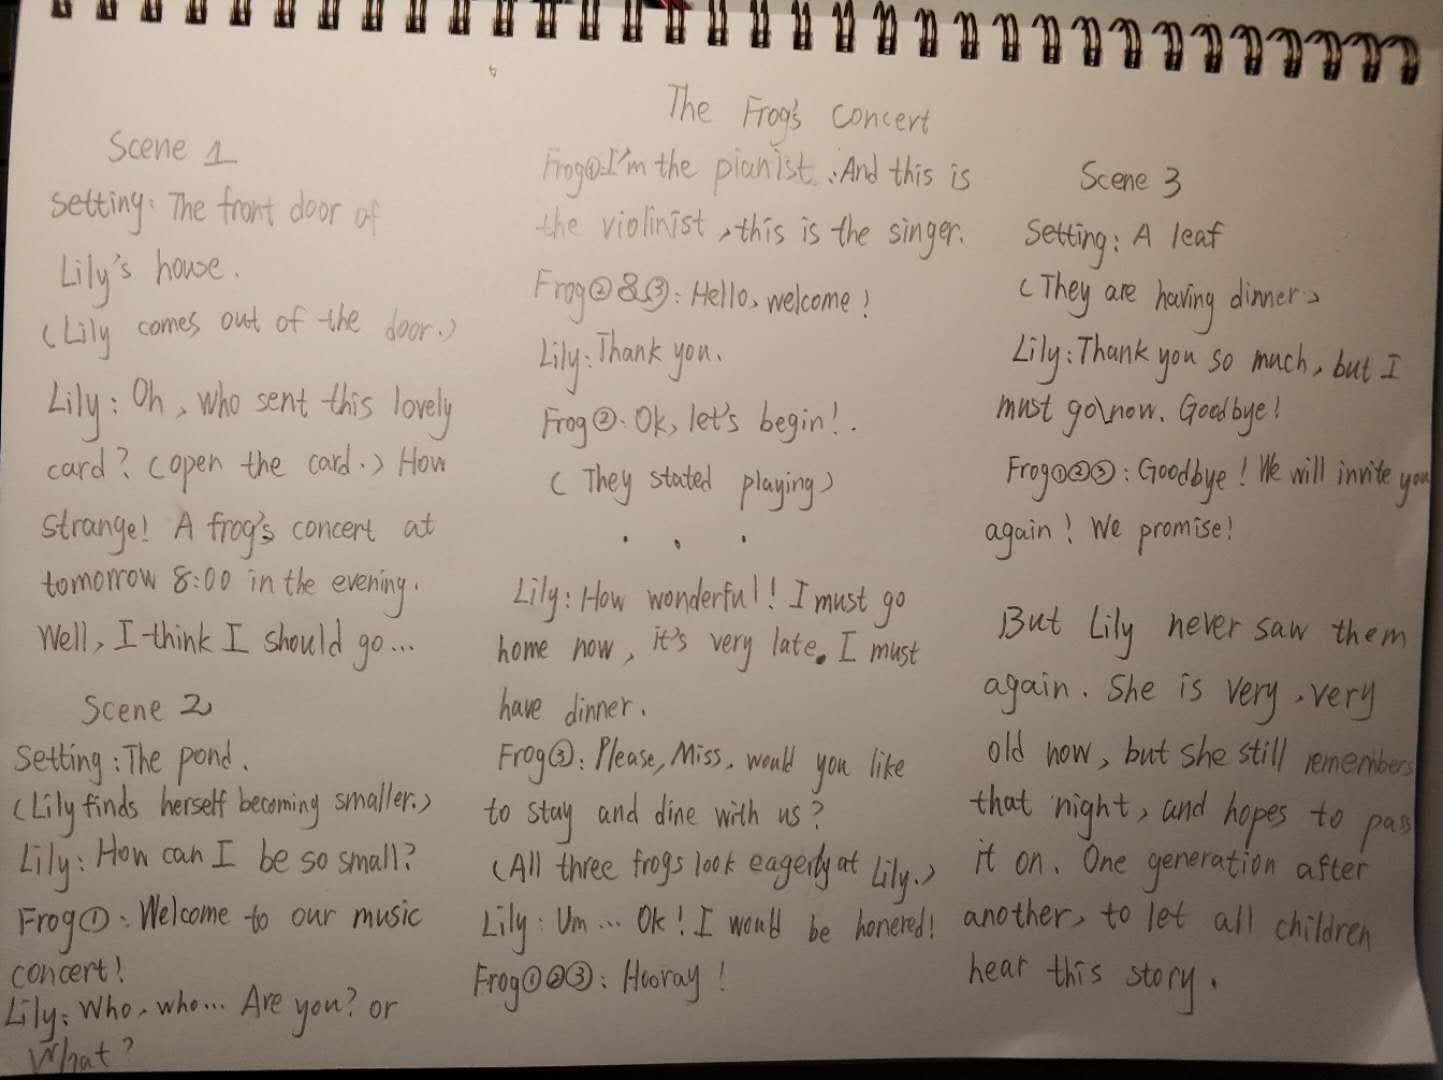 The Frog's Concert
Scene 1
Setting: The front door of
Lily's house.
(Lily comes out of the door.)
Lily: Oh, who sent this lovely
card? (open the card.) How
strange! A frog's concert at
tomorrow 8:00 in the evening.
Well, I think I should go...
Scene 2
Setting: The pond.
(Lily finds herself becoming smaller.)
Lily: How can I be so small?
Frog①: Welcome to our music
concert!
Lily: Who, who... Are you? or
What?
Frog①: I'm the pianist. And this is
the violinist, this is the singer.
Frog②&③: Hello, welcome!
Lily: Thank you.
Frog②: Ok, let's begin!.
(They stated playing)
. . .
Lily: How wonderful! I must go
home now, it's very late. I must
have dinner.
Frog③: Please, Miss, would you like
to stay and dine with us?
(All three frogs look eagerly at Lily.)
Lily: Um... Ok! I would be honered!
Frog①②③: Hooray!
Scene 3
Setting: A leaf
(They are having dinner.)
Lily: Thank you so much, but I
must go now. Goodbye!
Frog①②③: Goodbye! We will invite you
again! We promise!
But Lily never saw them
again. She is very, very
old now, but she still remembers
that night, and hopes to pass
it on. One generation after
another, to let all children
hear this story.